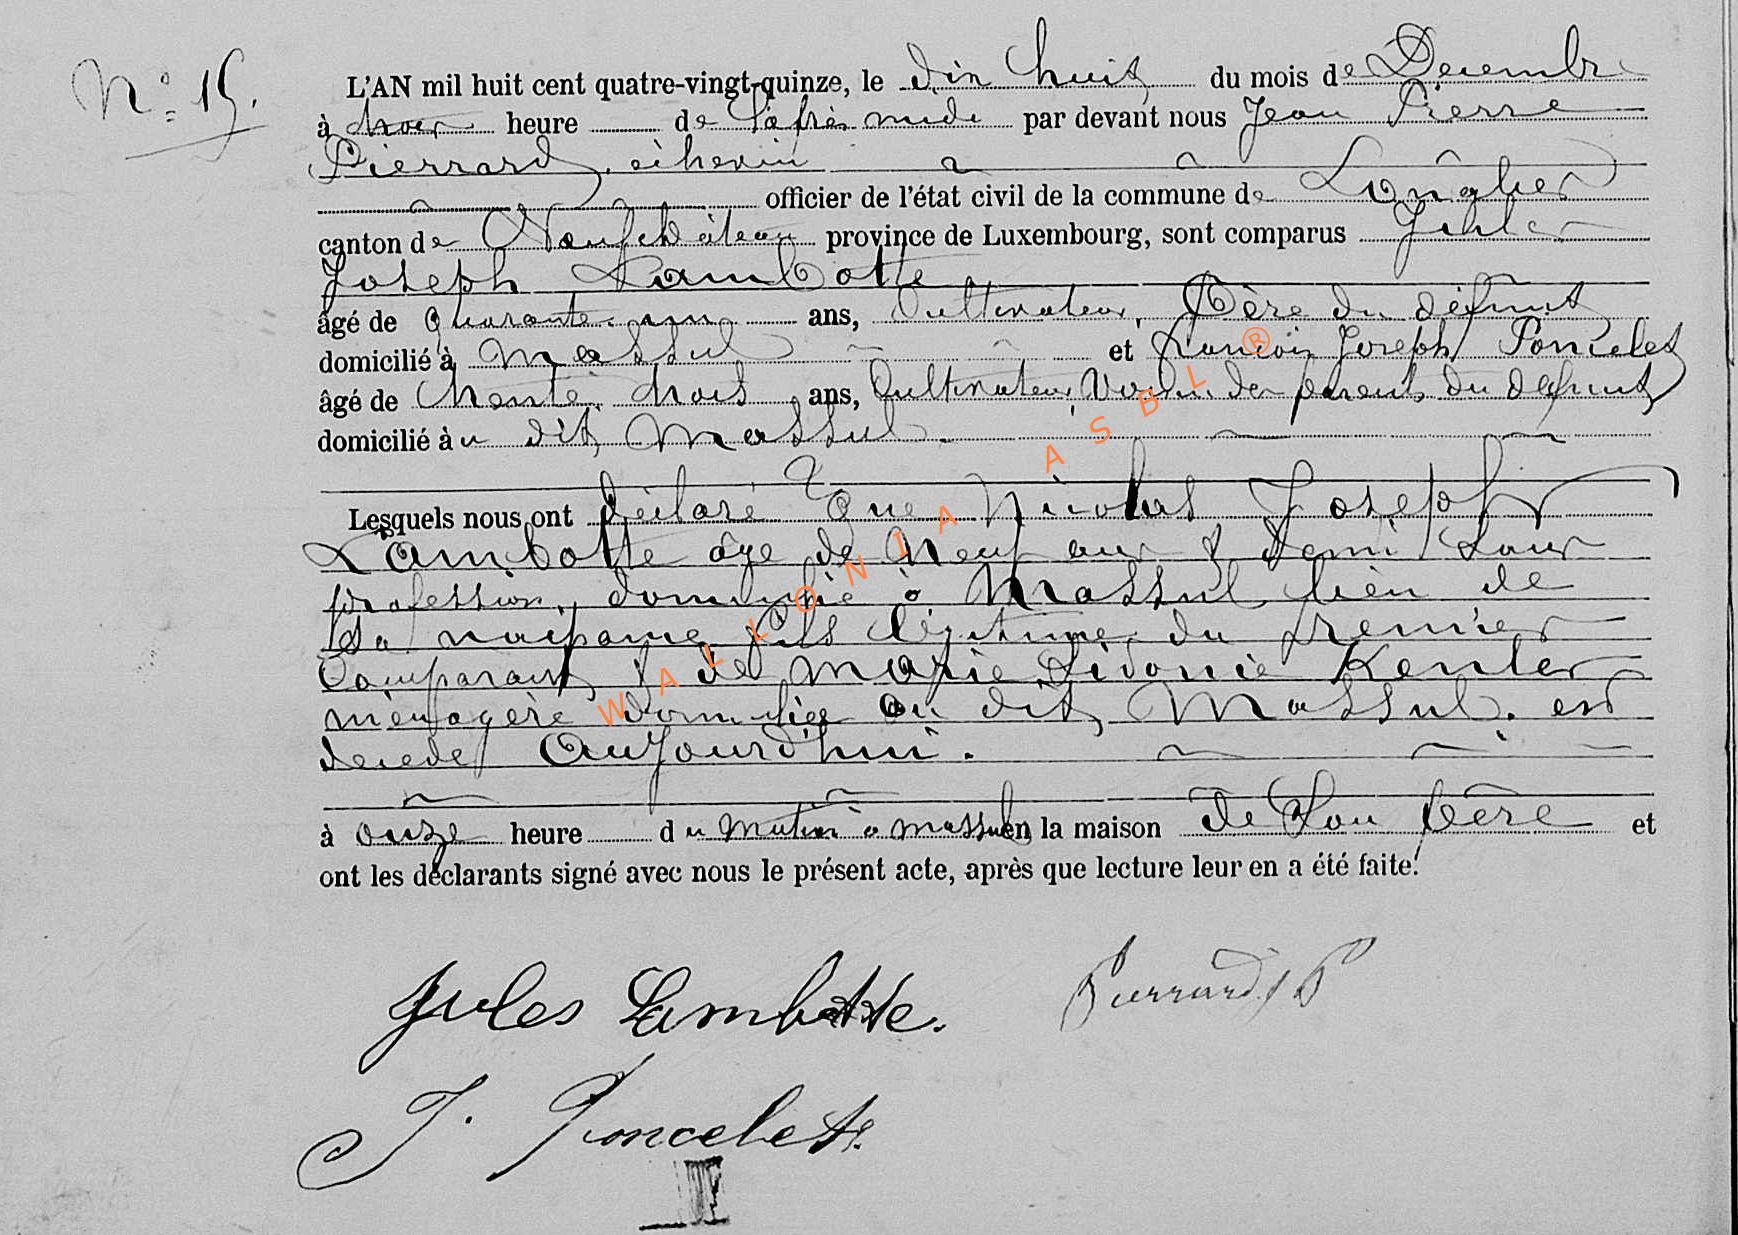 N°: 15.
L'AN mil huit cent quatre-vingt-quinze, le dix huit du mois de Decembre
à trois heure de l'après midi par devant nous Jean Pierre
Pierrard, échevin
officier de l'état civil de la commune de Longlier
canton de Neufchâteau province de Luxembourg, sont comparus Jules
Joseph Lambotte
âgé de quarante un ans, Cultivateur, Père du défunt
domicilié à Massul et François Joseph Poncelet
âgé de trente trois ans, Cultivateur, Voisin des parents du défunt
domicilié au dit Massul.
Lesquels nous ont déclaré Que Nicolas Joseph
Lambotte âgé de Neuf ans & demi Sans
profession, domicilié à Massul lieu de
Sa naissance fils légitime du premier
Comparant & de Marie Sidonie Kenler
ménagère domiciliée au dit Massul. est
decede Aujourd'hui.
à onze heure du matin à massul en la maison de Son Père et
ont les déclarants signé avec nous le présent acte, après que lecture leur en a été faite.
Jules Lambotte.
Pierrard JP
J. Poncelet.
WALLONIA ASBL ®